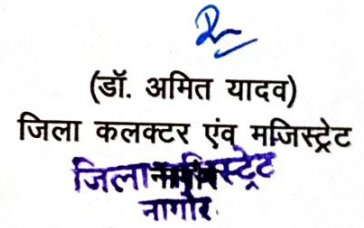 (डॉ. अमित यादव)
जिला कलक्टर एंव मजिस्ट्रेट
जिला मजिस्ट्रेट
नागौर